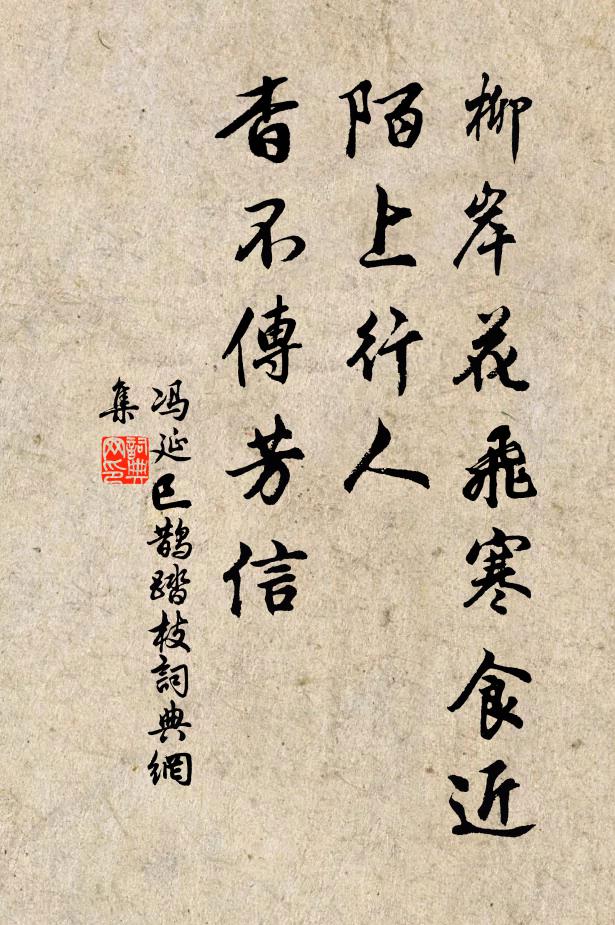 柳岸花飛寒食近
陌上行人
杳不傳芳信
冯延巳鵲踏枝詞典網
集
詞典
网印